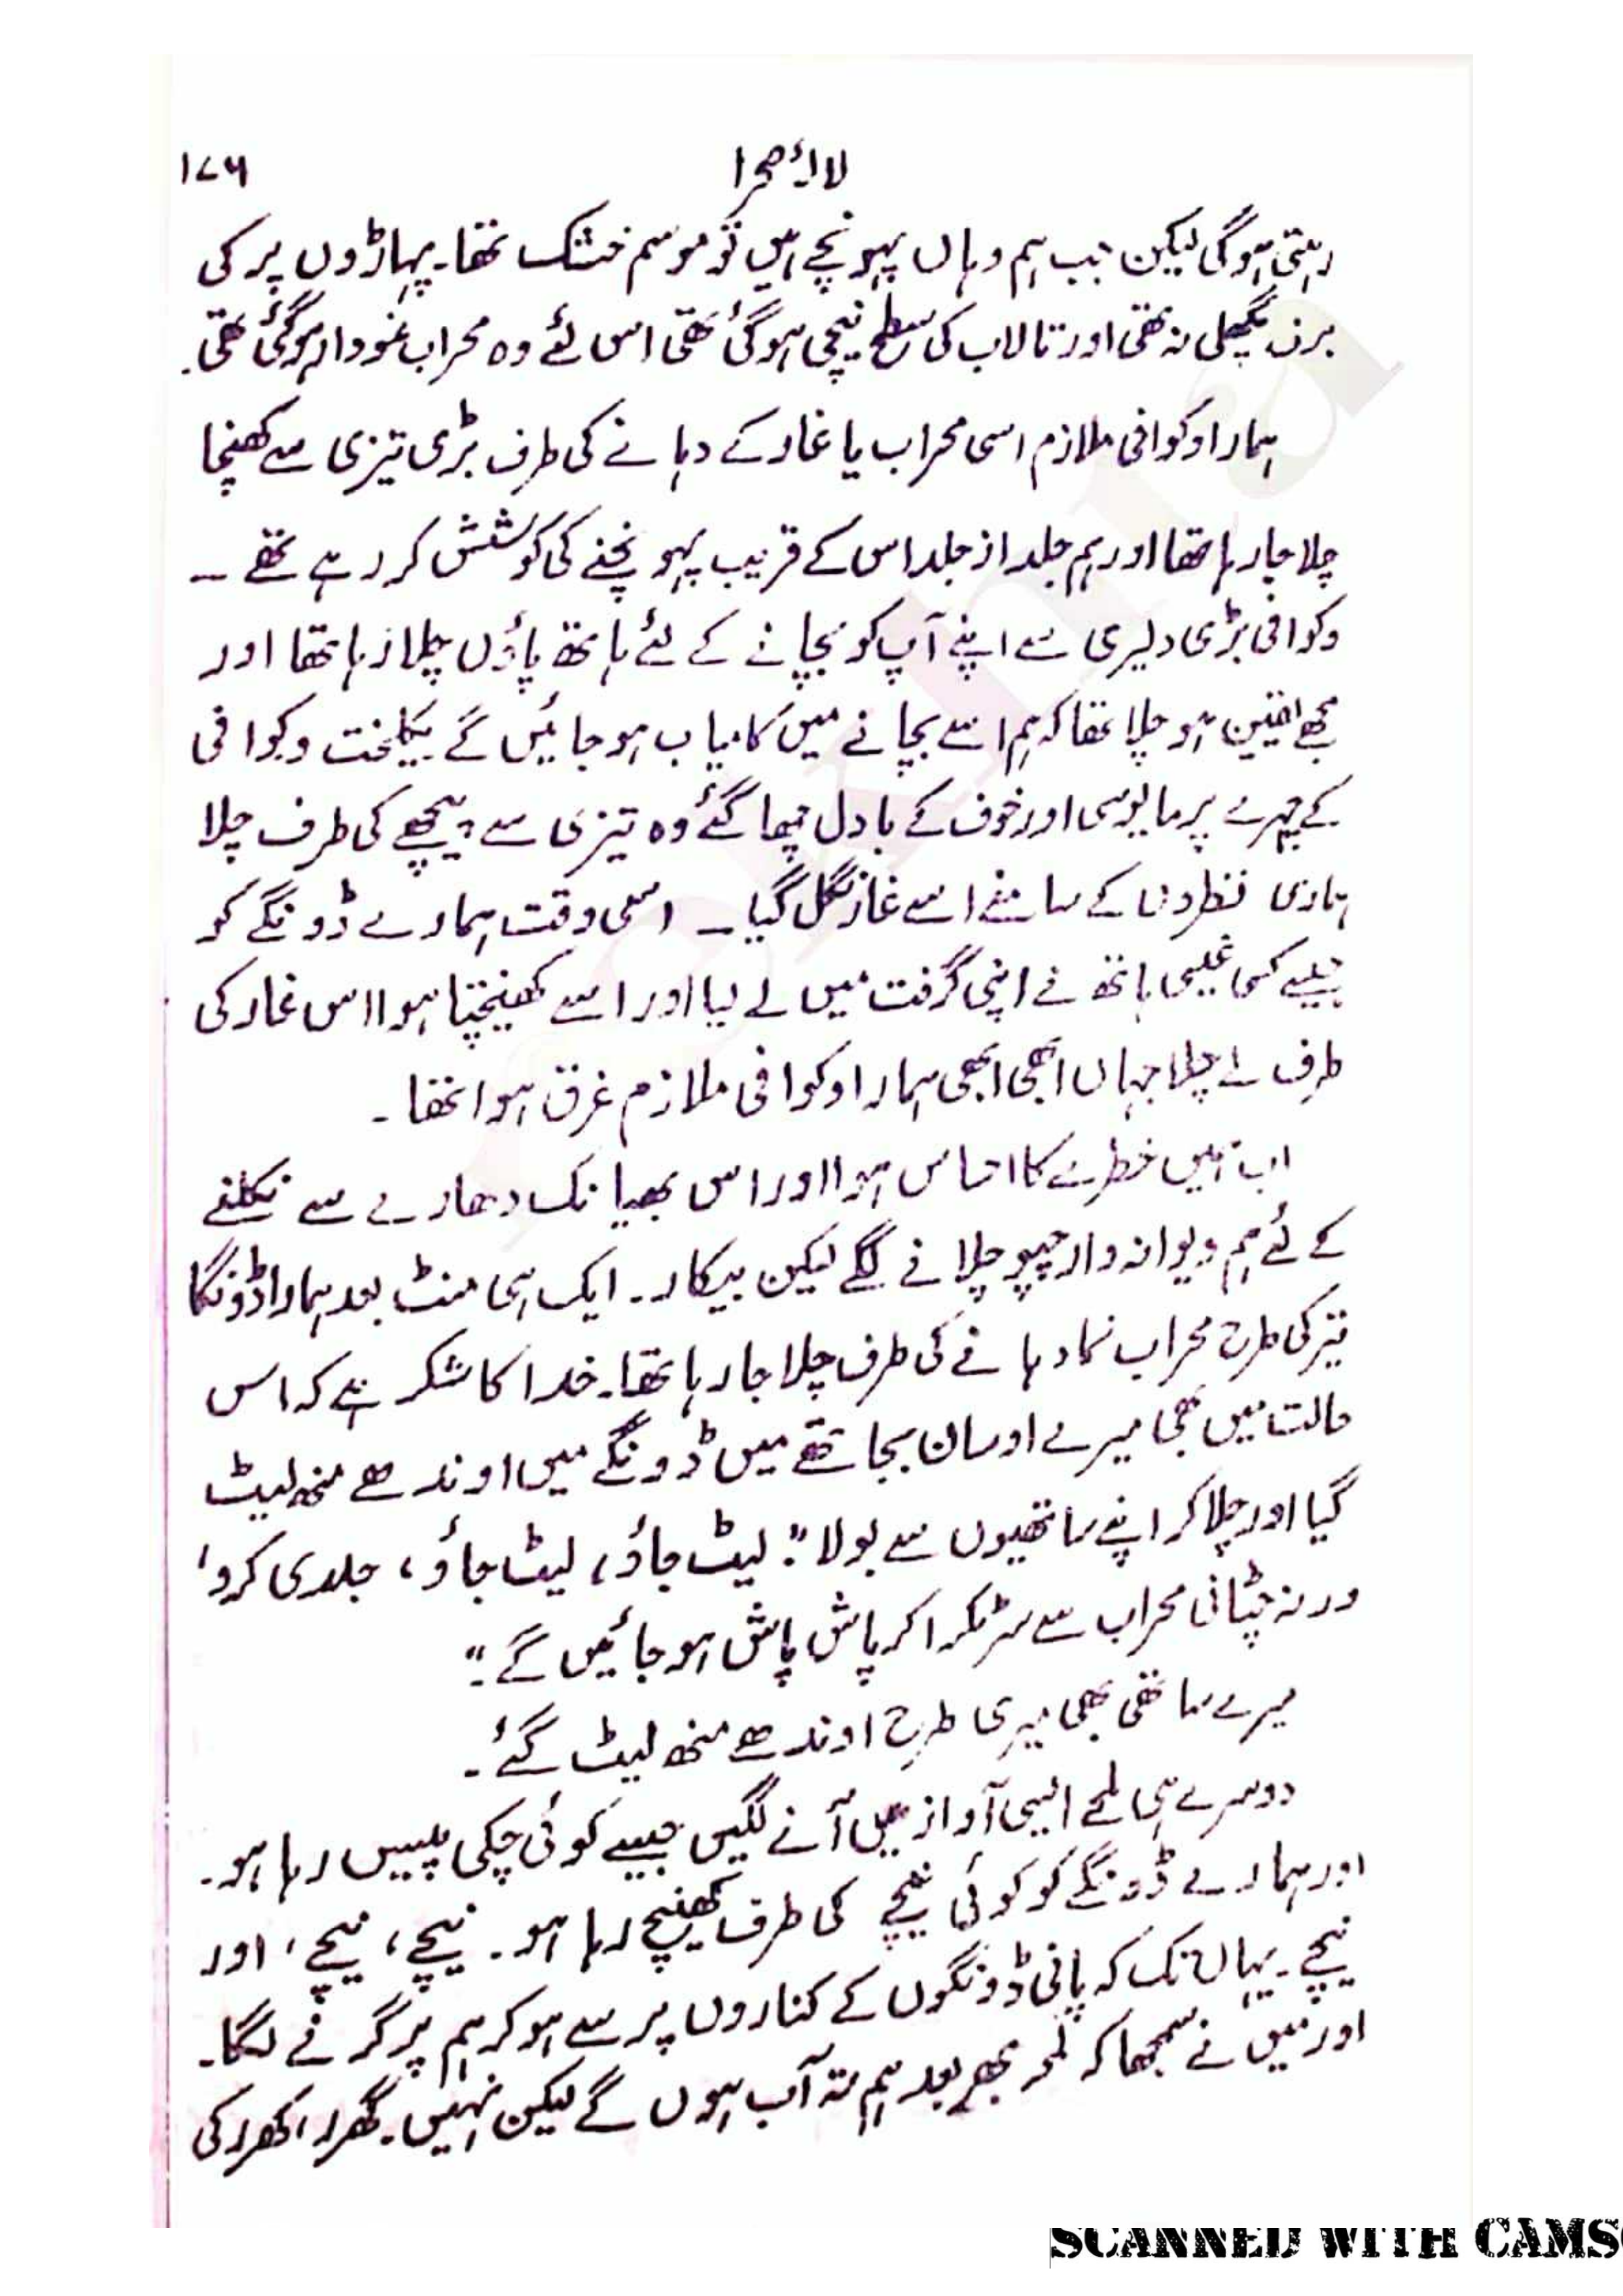 لالۂ صحرا ۱۷۶
رہتی ہوگی لیکن جب ہم وہاں پہونچے ہیں تو موسم خشک تھا۔ پہاڑوں پر کی
برف پگھلی نہ تھی اور تالاب کی سطح نیچی ہوگئی تھی اس لئے وہ محراب نمودار ہوگئی تھی۔
ہمارا وکوافی ملازم اسی محراب یا غار کے دہانے کی طرف بڑی تیزی سے کھنچا
چلا جا رہا تھا اور ہم جلد از جلد اس کے قریب پہونچنے کی کوشش کر رہے تھے ۔
وکوافی بڑی دلیری سے اپنے آپ کو بچانے کے لئے ہاتھ پاؤں چلا رہا تھا اور
مجھے یقین ہو چلا تھا کہ ہم اسے بچانے میں کامیاب ہو جائیں گے یکلخت وکوافی
کے چہرے پر مایوسی اور خوف کے بادل چھا گئے وہ تیزی سے پیچھے کی طرف چلا
ہماری نظروں کے سامنے اسے غار نگل گیا۔ اسی وقت ہمارے ڈونگے کو
جیسے کسی غیبی ہاتھ نے اپنی گرفت میں لے لیا اور اسے کھینچتا ہوا اس غار کی
طرف لے چلا جہاں ابھی ابھی ہمارا وکوافی ملازم غرق ہوا تھا ۔
اب ہمیں خطرے کا احساس ہوا اور اس بھیانک دھارے سے نکلنے
کے لئے ہم دیوانہ وار چپو چلانے لگے لیکن بیکار۔ ایک ہی منٹ بعد ہمارا ڈونگا
تیر کی طرح محراب نما دہانے کی طرف چلا جا رہا تھا۔ خدا کا شکر ہے کہ اس
حالت میں بھی میرے اوسان بجا تھے میں ڈونگے میں اوندھے منھ لیٹ
گیا اور چلا کر اپنے ساتھیوں سے بولا "لیٹ جاؤ، لیٹ جاؤ، جلدی کرو،
ورنہ چٹانی محراب سے سر ٹکرا کر پاش پاش ہو جائیں گے۔"
میرے ساتھی بھی میری طرح اوندھے منھ لیٹ گئے ۔
دوسرے ہی لمحے ایسی آوازیں آنے لگیں جیسے کوئی چکی پیس رہا ہو۔
اور ہمارے ڈونگے کو کوئی نیچے کی طرف کھینچ رہا ہو۔ نیچے، نیچے، اور
نیچے۔ یہاں تک کہ پانی ڈونگوں کے کناروں پر سے ہو کر ہم پر گرنے لگا۔
اور میں نے سمجھا کہ لمحہ بھر بعد ہم تہ آب ہوں گے لیکن نہیں۔ گھرر، کھرر کی
SCANNED WITH CAMS